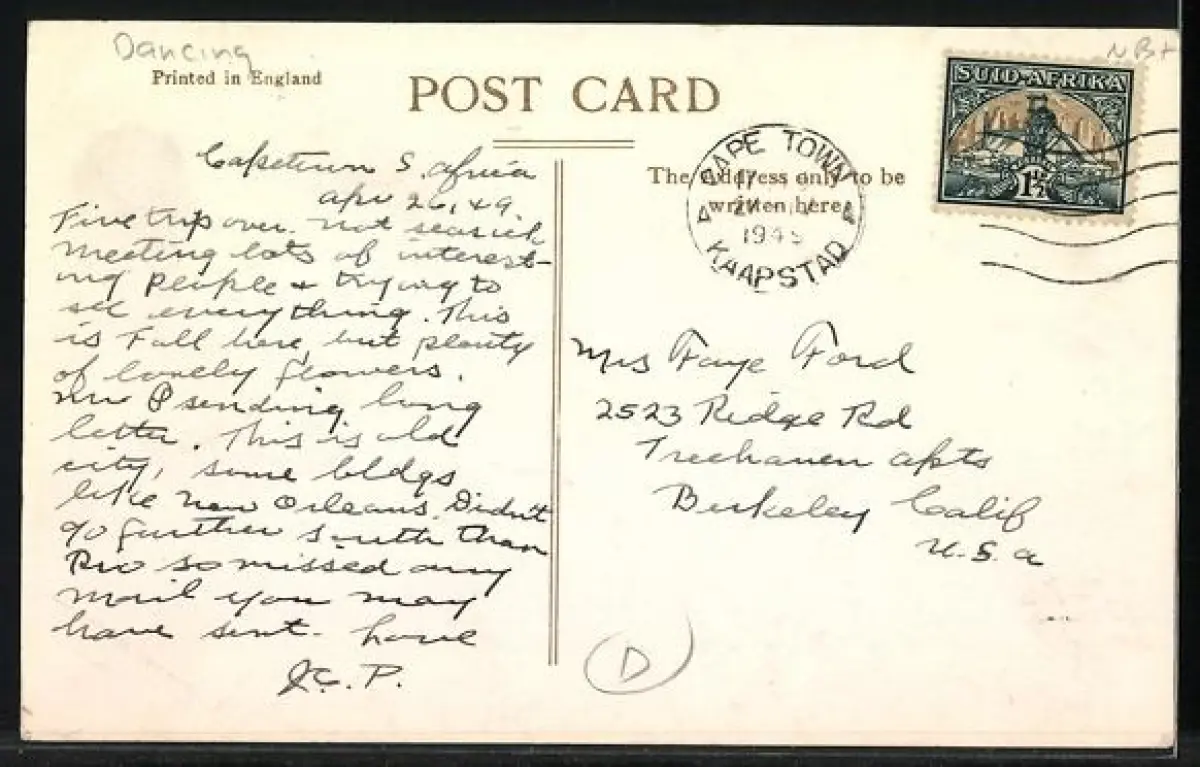 Dancing
Printed in England
POST CARD
N B+
SUID-AFRIKA
1½
CAPE TOWN
1949
KAAPSTAD
The Address only to be
written here
Capetown S. Africa
Apr 26, 49.
Fine trip over. Not seasick
meeting lots of interest-
ing people & trying to
see everything. This
is Fall here, but plenty
of lovely flowers.
sending long
letter. This is old
city, some bldgs
like New Orleans. Didn't
go further south than
Rio so missed any
mail you may
have sent- Love
J.C.P.
Mrs Faye Ford
2523 Ridge Rd
Treehaven Apts
Berkeley Calif
U.S.A
D